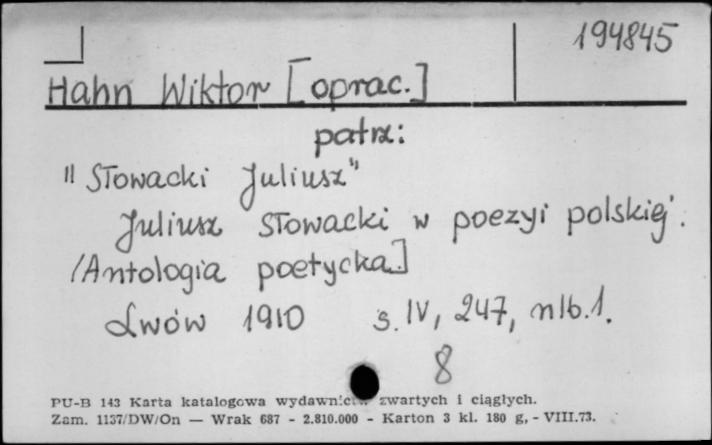 194845
Hahn Wiktor [oprac.]
patrz:
"Słowacki Juliusz"
Juliusz Słowacki w poezyi polskiej.
/Antologia poetycka]
Lwów 1910 s. IV, 247, nlb.1.
8
PU-B 143 Karta katalogowa wydawnictw zwartych i ciągłych.
Zam. 1137/DW/On — Wrak 687 - 2.810.000 - Karton 3 kl. 180 g, - VIII.73.